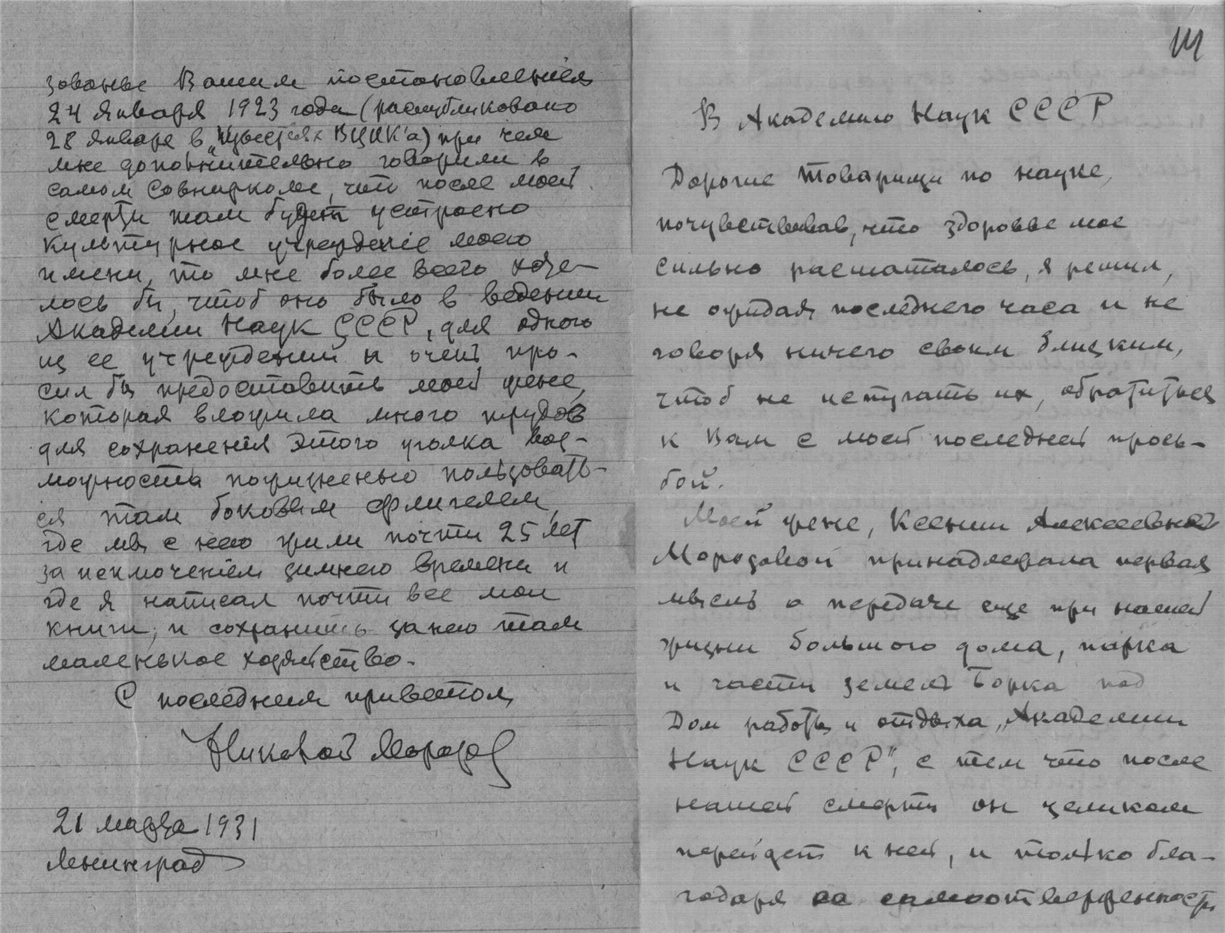 В Академию Наук СССР
Дорогие товарищи по науке,
почувствовав, что здоровье мое
сильно расшаталось, я решил,
не ожидая последнего часа и не
говоря ничего своим близким,
чтоб не испугать их, обратиться
к Вам с моей последней прось-
бой.
Моей жене, Ксении Алексеевне
Морозовой принадлежала первая
мысль о передаче еще при нашей
жизни большого дома, парка
и части земель Борка под
Дом работы и отдыха „Академии
Наук СССР", с тем что после
нашей смерти он целиком
перейдет к ней, и только бла-
годаря ея самоотверженности
зованье Вашим постановлением
24 января 1923 года (распубликовано
28 января в „Известиях ВЦИК'а) при чем
мне дополнительно говорили в
самом Совнаркоме, что после моей
смерти там будет устроено
культурное учреждение моего
имени, то мне более всего хоте-
лось бы, чтоб оно было в ведении
Академии Наук СССР, для одного
из ее учреждений и очень про-
сил бы предоставить моей жене,
которая вложила много трудов
для сохранения этого уголка воз-
можность пожизненно пользовать-
ся там боковым флигелем,
где мы с нею жили почти 25 лет
за исключением зимнего времени и
где я написал почти все мои
книги, и сохранить за нею там
маленькое хозяйство.
С последним приветом
Николай Морозов
21 марта 1931
Ленинград